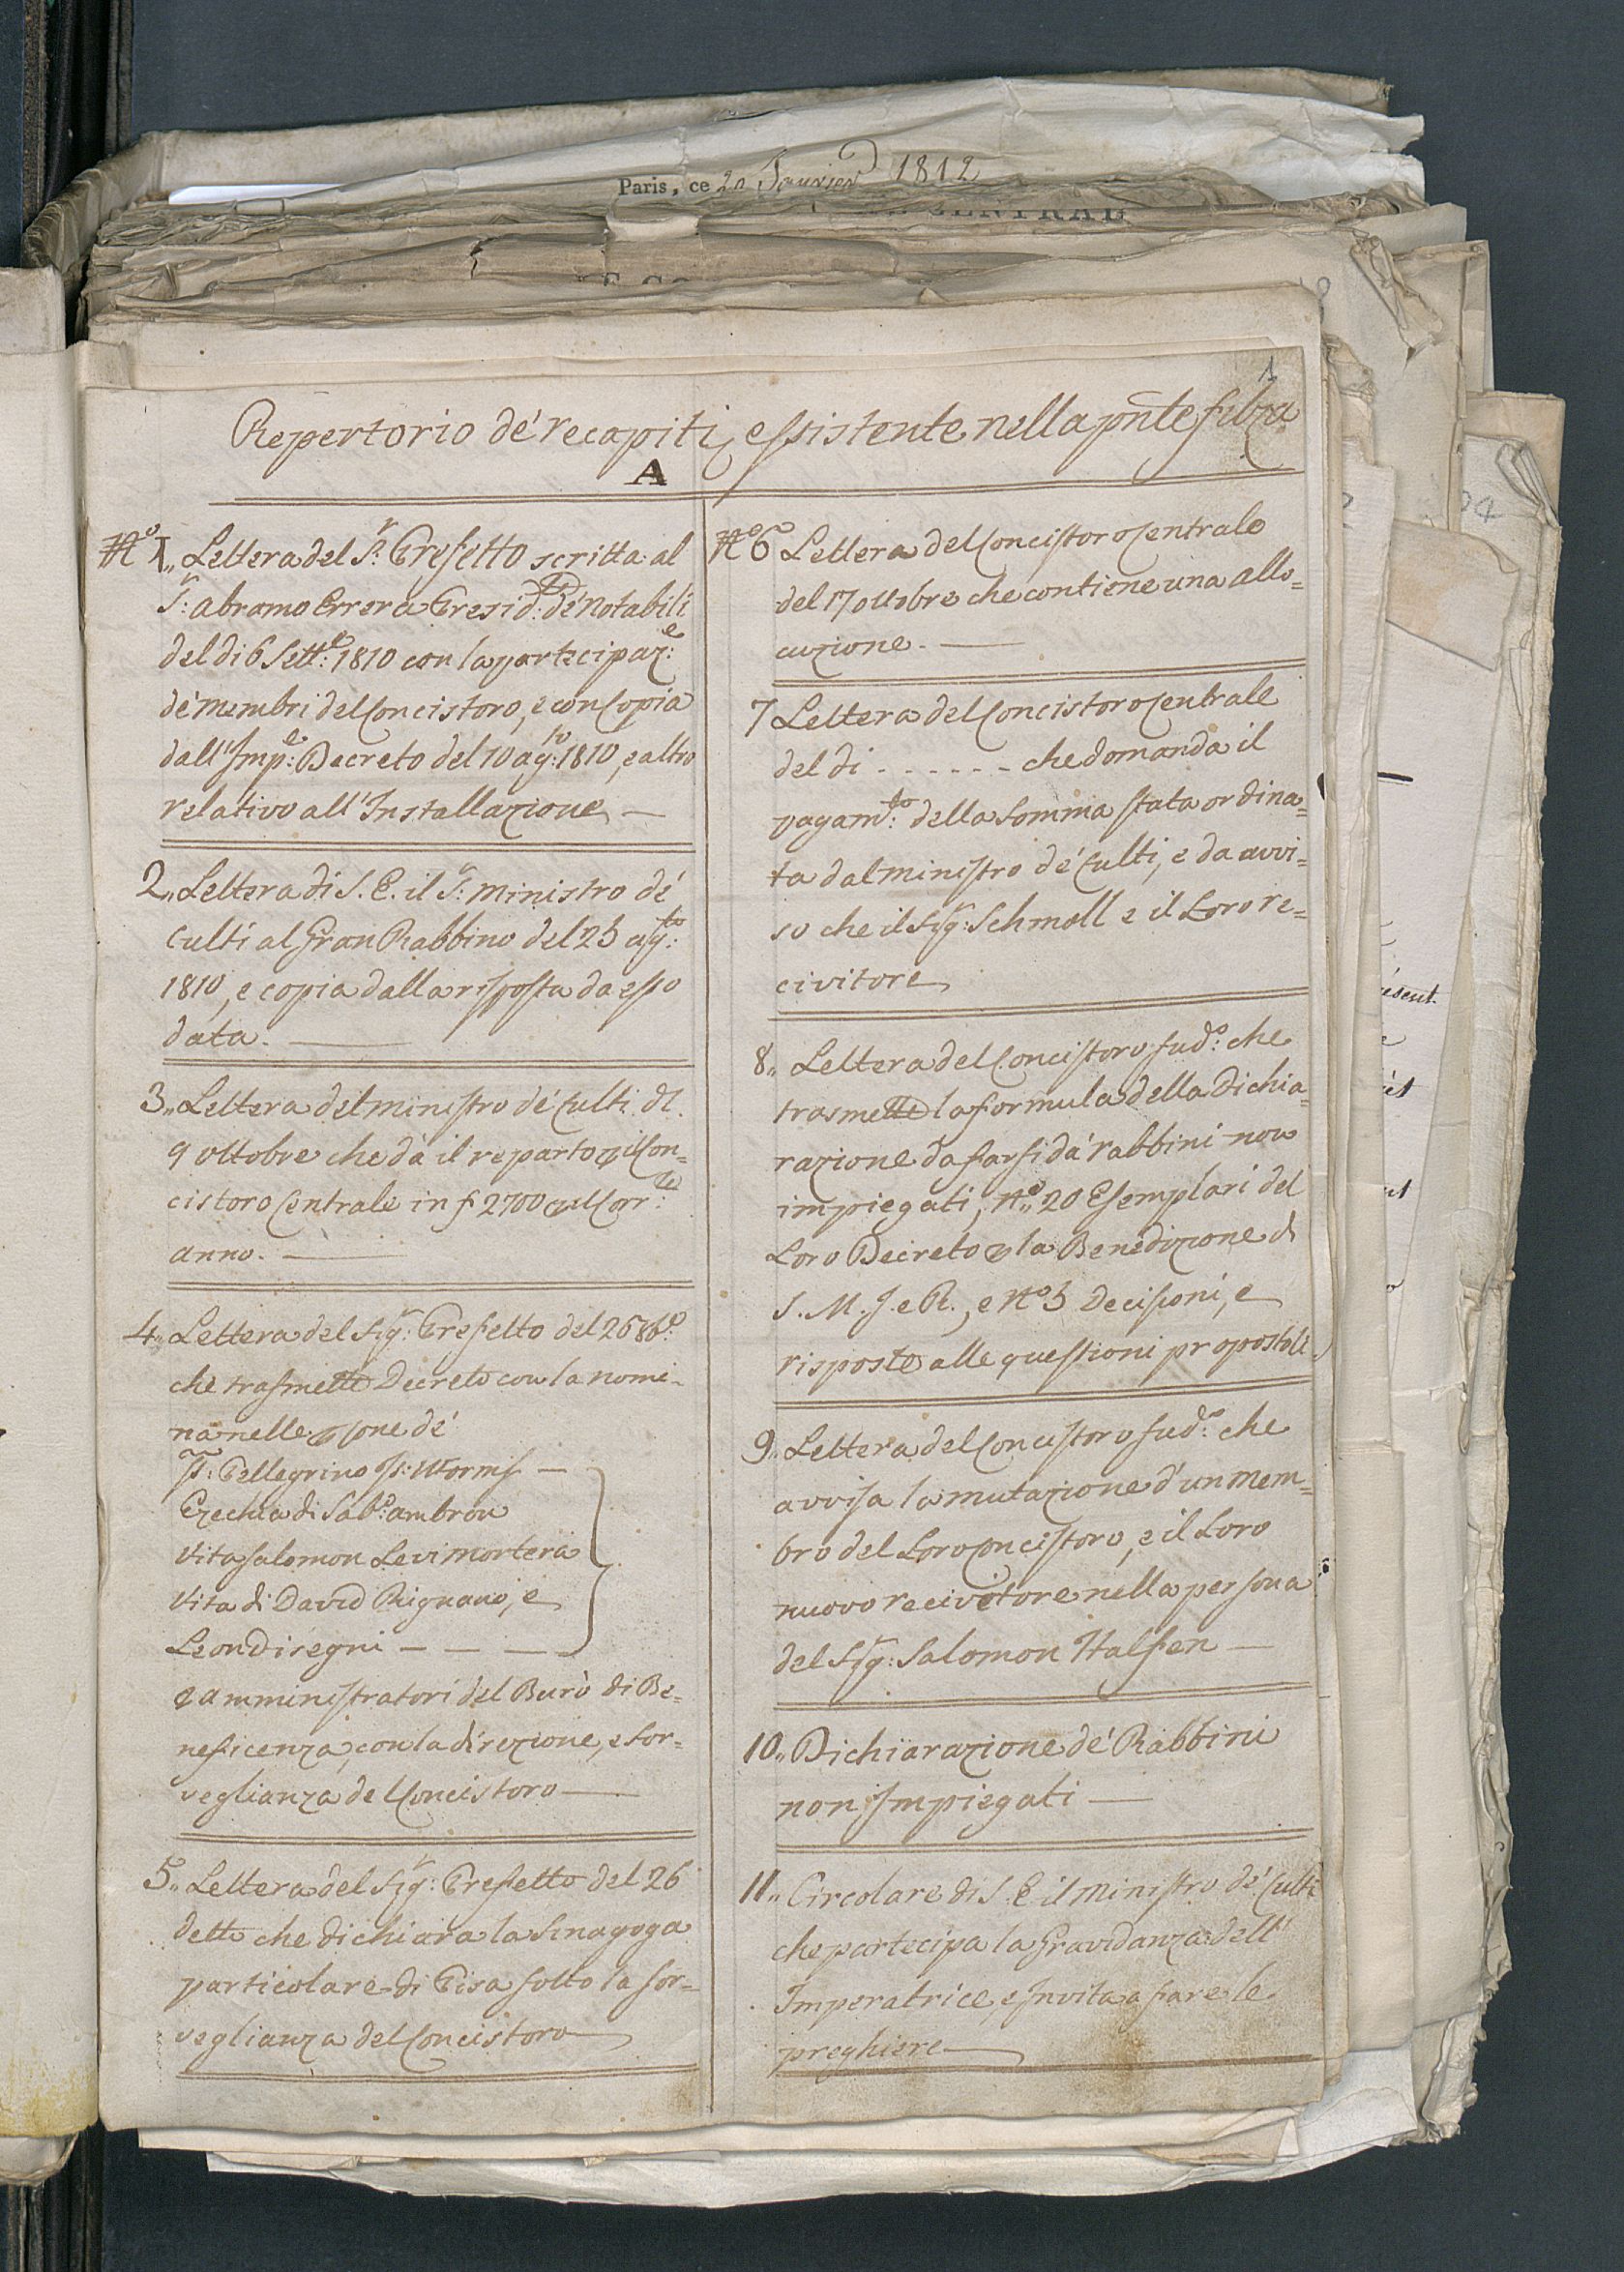 Paris, ce 20 Janvier 1812
CENTRAL
1
Repertorio de' recapiti essistente nella pnte filza
A
No 1,, Lettera del Sr. Prefetto scritta al
Sr: Abramo Errera Presid:te de' Notabili
del di 6 Sett:e 1810 con la partecipaz:e
de' membri del Concistoro, e con Copia
dall' Imp:e Decreto del 10 ag:to 1810, e altro
relativo all' Installazione —
2,, Lettera di S. E. il Sr: Ministro de'
Culti al Gran Rabbino del 23 ag:to
1810, e copia dalla risposta da esso
data. —
3,, Lettera del Ministro de' Culti dl.
9 Ottobre che dà il reparto p il Con=
cistoro Centrale in f 2700 pel Corr:te
anno. —
4,, Lettera del Sigr: Prefetto del 26 8b:e
che trasmette Decreto con la nomi-
na nelle psone de'
SS:ri Pellegrino Js: Worms —
Ezechia di Sab:o Ambron
Vita Salomon Levi Mortera
Vita di David Rignano, e
Leon Disegni — — —
e amministratori del Burò di Be=
neficenza, con la direzione, e sor=
veglianza del Concistoro —
5,, Lettera del Sigr: Prefetto del 26
detto che dichiara la Sinagoga
particolare di Pisa sotto la sor=
veglianza del Concistoro —
No 6 Lettera del Concistoro Centrale
del 17 ottobre che contiene una allo=
cuzione. —
7 Lettera del Concistoro Centrale
del di - - - - - - che domanda il
pagam:to della somma stata ordina=
ta dal ministro de' Culti, e da avvi=
so che il Sigr: Schmoll e il Loro re=
civitore
8,, Lettera del Concistoro sud:o che
trasmette la formula della Dichia=
razione da farsi da' rabbini non
impiegati, No 20 Esemplari del
Loro Decreto p la Benedizione di
S. M. J. e R., e No 3 Decisioni, e
risposte alle questioni propostoli.
9,, Lettera del Concistoro sud:o che
avvisa la mutazione d'un mem=
bro del Loro Concistoro, e il Loro
nuovo recivitore nella persona
del Sigr: Salomon Halfen —
10,, Dichiarazione de' Rabbini
non Impiegati —
11,, Circolare di S. E. il Ministro de' Culti
che partecipa la Gravidanza dell'
Imperatrice, e Invita a fare le
preghiere —